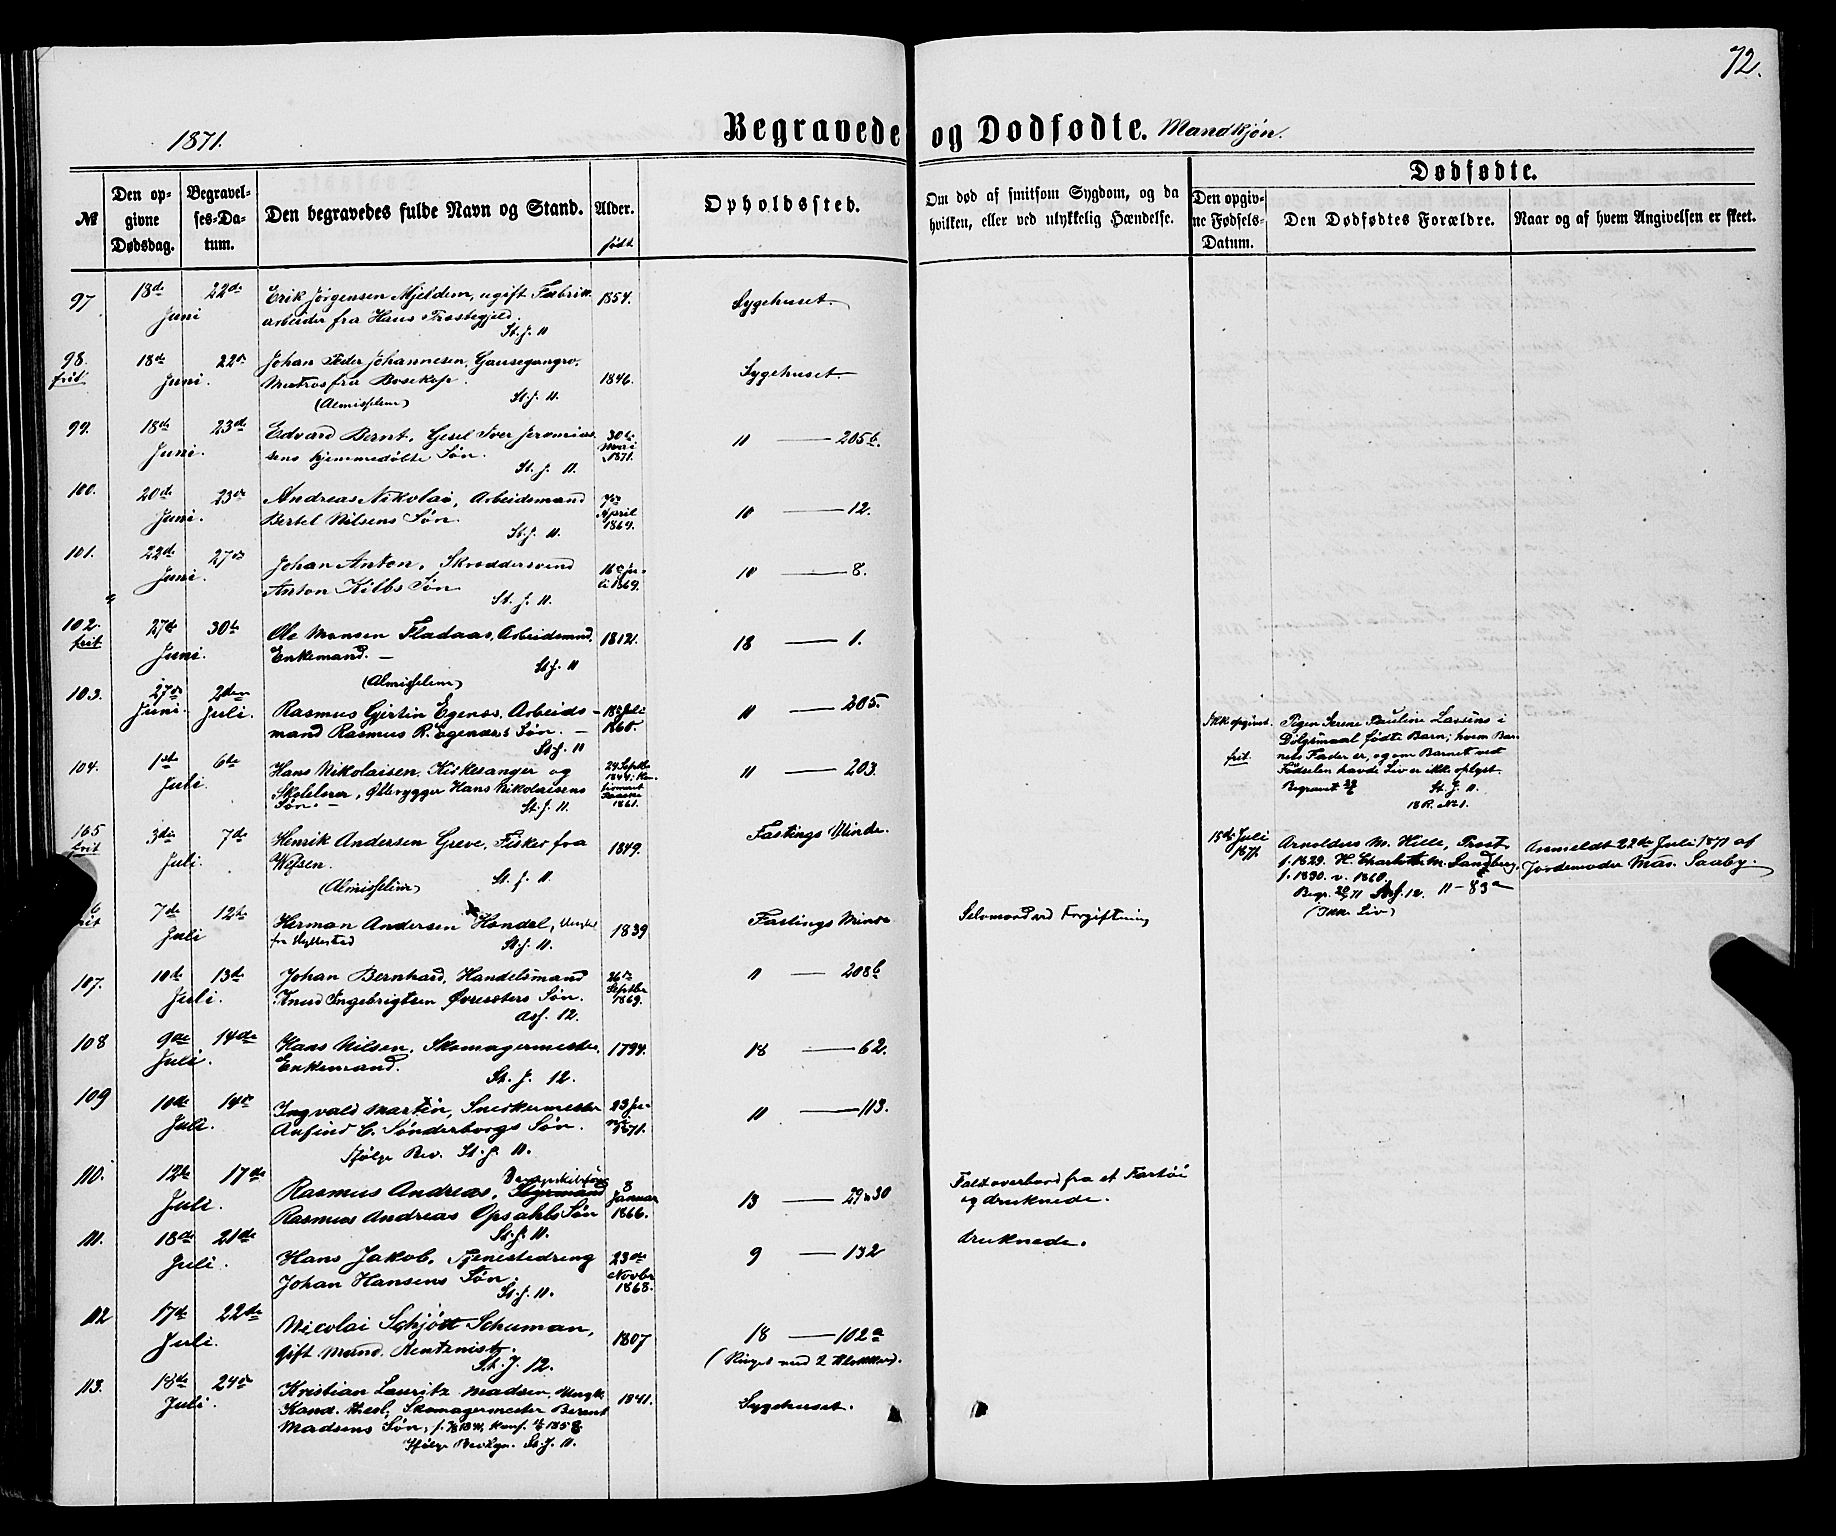 72.
1871.
Begravede og Dødfødte. Mandkjøn.
№
Den opgivne Dødsdag.
Begravelses-Datum.
Den begravedes fulde Navn og Stand.
Alder.
født
Opholdssted.
Om død af smitsom Sygdom, og da hvilken, eller ved ulykkelig Hændelse.
Dødfødte.
Den opgivne Fødsels-Datum.
Den Dødfødtes Forældre.
Naar og af hvem Angivelsen er skeet.
97 18de Juni 22de Erik Jørgensen Mjeldem, ugift Fabrik- 1854. Sygehuset.
arbeider fra Hans Trostegjeld.
St. J. 11
98. frit 18de Juni. 22de Johan Peder Johannesen, 1846. Sygehuset.
Matros fra Bosekop.
(Almisselem) St. J. 11.
99. 18de Juni. 23de Edvard Bernt, Gesel Iver Jeremias- 30te Mai 1871. 11 — 205b.
sens hjemmedøbte Søn.
St. J. 11.
100. 20de Juni. 23de Andreas Nikolai, Arbeidsmand 7de April 1869. 10 — 12.
Bertel Nilsens Søn.
St. J. 11.
101. 22de Juni. 27de Johan Anton, Skræddersvend 16de Ju- 10 — 8.
Anton Kilbs Søn li 1869.
St. J. 11.
102. frit 27de Juni. 30te Ole Monsen Fladaas, Arbeidsmd. 1812. 18 — 1.
Enkemand. —
St. J. 11
(Almisselem)
103. 27de Juni. 2den Juli. Rasmus Gjertin Egenes, Arbeids- 18de Juli 1865. 11 — 205.
mand Rasmus R. Egenæs's Søn. —
St. J. 11
Ikke opgivet. frit.
Pigen Serene Pauline Lassens i
Dølgsmaal fødte Barn; hvem Bar-
nets Fader er, og om Barnet ved
Fødselen havde Liv er ikke oplyst.
Begravet St. J. 11.
18 R. No 1.
104. 1ste Juli. 6te Hans Nikolaisen, Kirkesanger og 29 Septbr 1844; 1861. 11 — 203.
Skolelærer, Ølbrygger Hans Nikolaisens
Søn. — St. J. 11.
105 frit 3die Juli. 7de Henrik Andersen Greve, Fisker fra 1849. Fastings Minde.
Vefsen.
(Almisselem) St. J. 11.
15de Juli 1871.
Arnoldus M. Hille, Provst
f. 1829. H. Charlotte M. Sandberg,
f. 1830. v. 1860.
Begr. 20/7 71 Asf. 12. 11 – 83a
(Ikke Liv)
Anmeldt 22de Juli 1871 af
Jordemoder Mas. Saaby.
7de Juli 12te Herman Andersen Handal, Ungkl 1839 Fastings Minde Selvmord ved Forgiftning
fra Hyllestad St. J. 11.
107. 10de Juli. 13de Johan Bernhard, Handelsmand 26de Septbr 1869. 11 — 208b
Knud Ingebrigtsen Øvresæters Søn.
Asf. 12.
108 9de Juli. 14de Hans Nilsen, Skomagermester, 1794. 18 — 62.
Enkemand.
St. J. 12.
109 10de Juli. 14de Ingvald Martin, Snedkermester 23 Ju- 11 — 113.
Anfind C. Sønderborgs Søn. ni 1871.
Ifølge Bev. St. J. 11.
110. 12te Juli. 17de Rasmus Andreas, Styrmand 8 Januar 1866. 13 — 29 n 30 Faldt overbord fra et Fartøi
Rasmus Andreas Opsahls Søn og druknede.
St. J. 11.
111. 18de Juli. 21de Hans Jakob, Tjenestedreng 23de Novbr 1868. 9 — 132 druknede.
Johan Hansens Søn.
St. J. 11.
112 17de Juli. 22de Nicolai Schjøtt Schuman, 1807 18 — 102a
gift Mand. Rentenist.
St. J. 12. (Ringet med 2 Klokker).
113. 18de Juli. 24de Kristian Lauritz Madsen, Ungk. 1841. Sygehuset.
Kand. theol, Skomagermester Berent
Madsens Søn, Konf. 1858
Ifølge Bevilgn. St. J. 11.